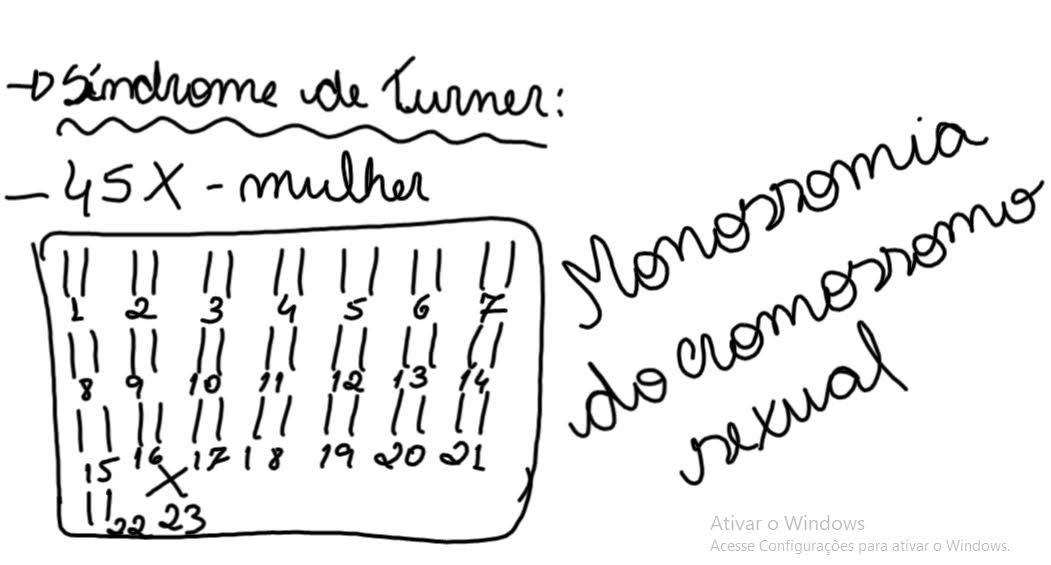 → Síndrome de Turner:
- 45X - mulher
1 2 3 4 5 6 7
8 9 10 11 12 13 14
15 16 17 18 19 20 21
22 X 23
Monossomia
do cromossomo
sexual
Ativar o Windows
Acesse Configurações para ativar o Windows.